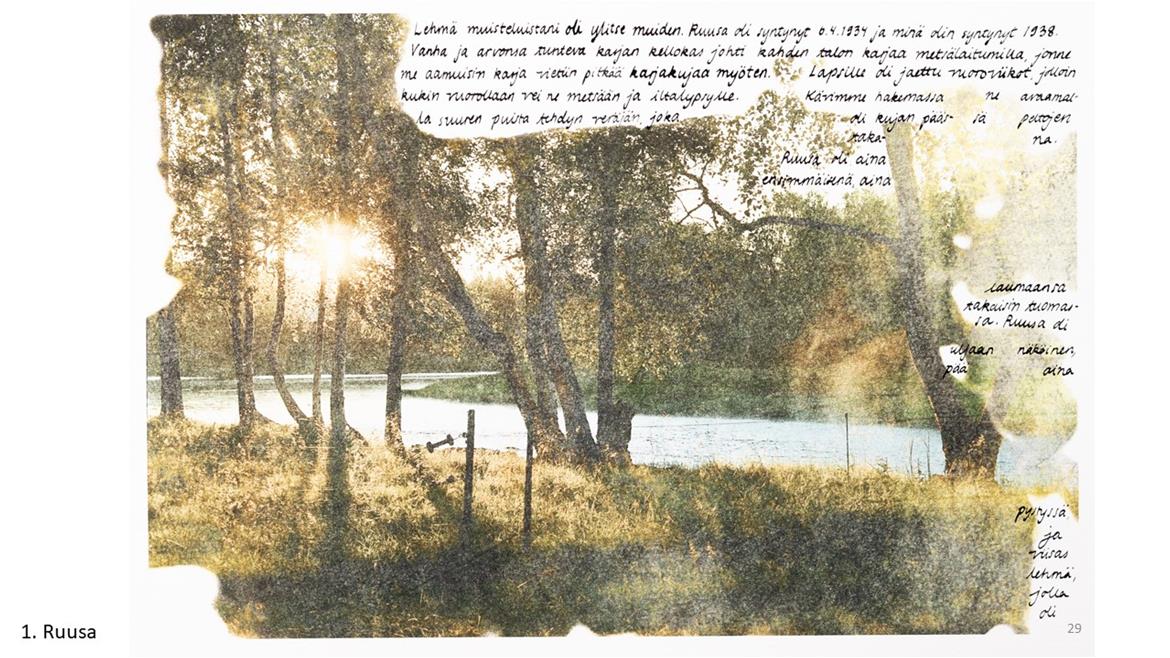 Lehmä muisteluistani oli ylitse muiden. Ruusa oli syntynyt 6.4.1934 ja minä olin syntynyt 1938.
Vanha ja arvonsa tunteva karjan kellokas johti kahden talon karjaa metsälaitumilla, jonne
me aamuisin karja vietiin pitkää karjakujaa myöten. Lapsille oli jaettu vuoroviikot, jolloin
kukin vuorollaan vei ne metsään ja iltalypsylle. Kävimme hakemassa ne avaamal-
la suuren puista tehdyn veräjän, joka oli kujan pääs- sä peltojen
taka- na.
Ruusa oli aina
ensimmäisenä, aina
laumaansa
takaisin tuomas-
sa. Ruusa oli
uljaan näköinen,
pää aina
pystyssä,
ja
viisas
lehmä,
jolla
oli
29
1. Ruusa